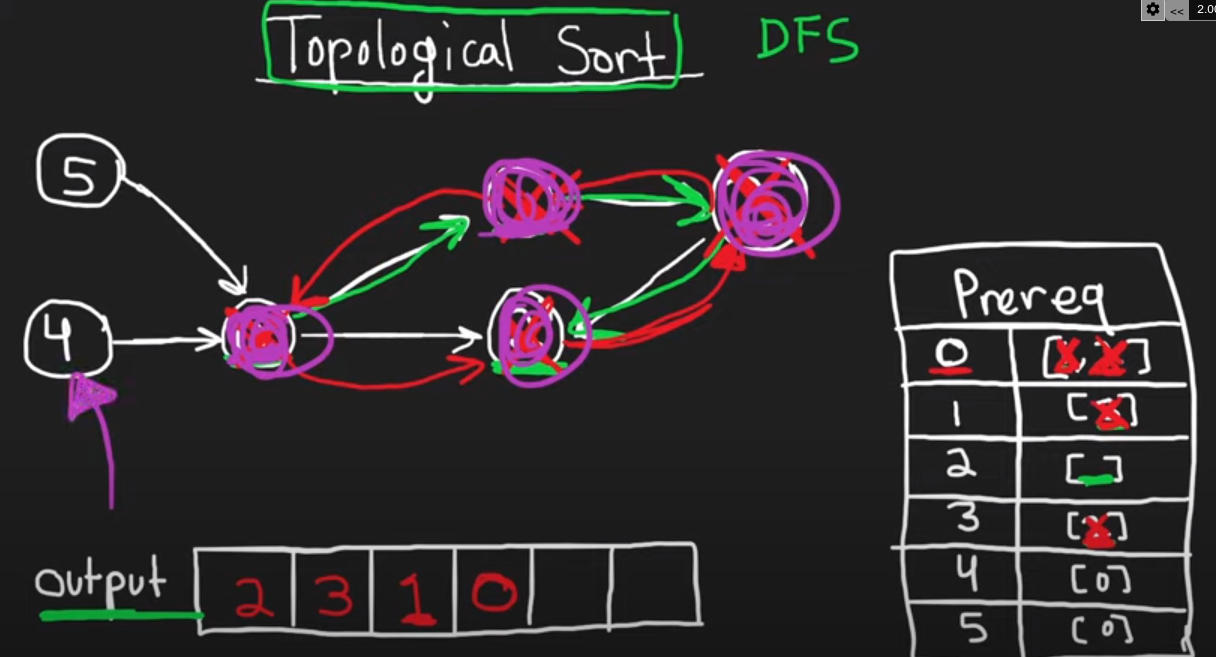 Topological Sort
DFS
<< 2.00
5
4
Prereq
0 [ , ]
1 [ ]
2 [ ]
3 [ ]
4 [0]
5 [0]
output 2 3 1 0